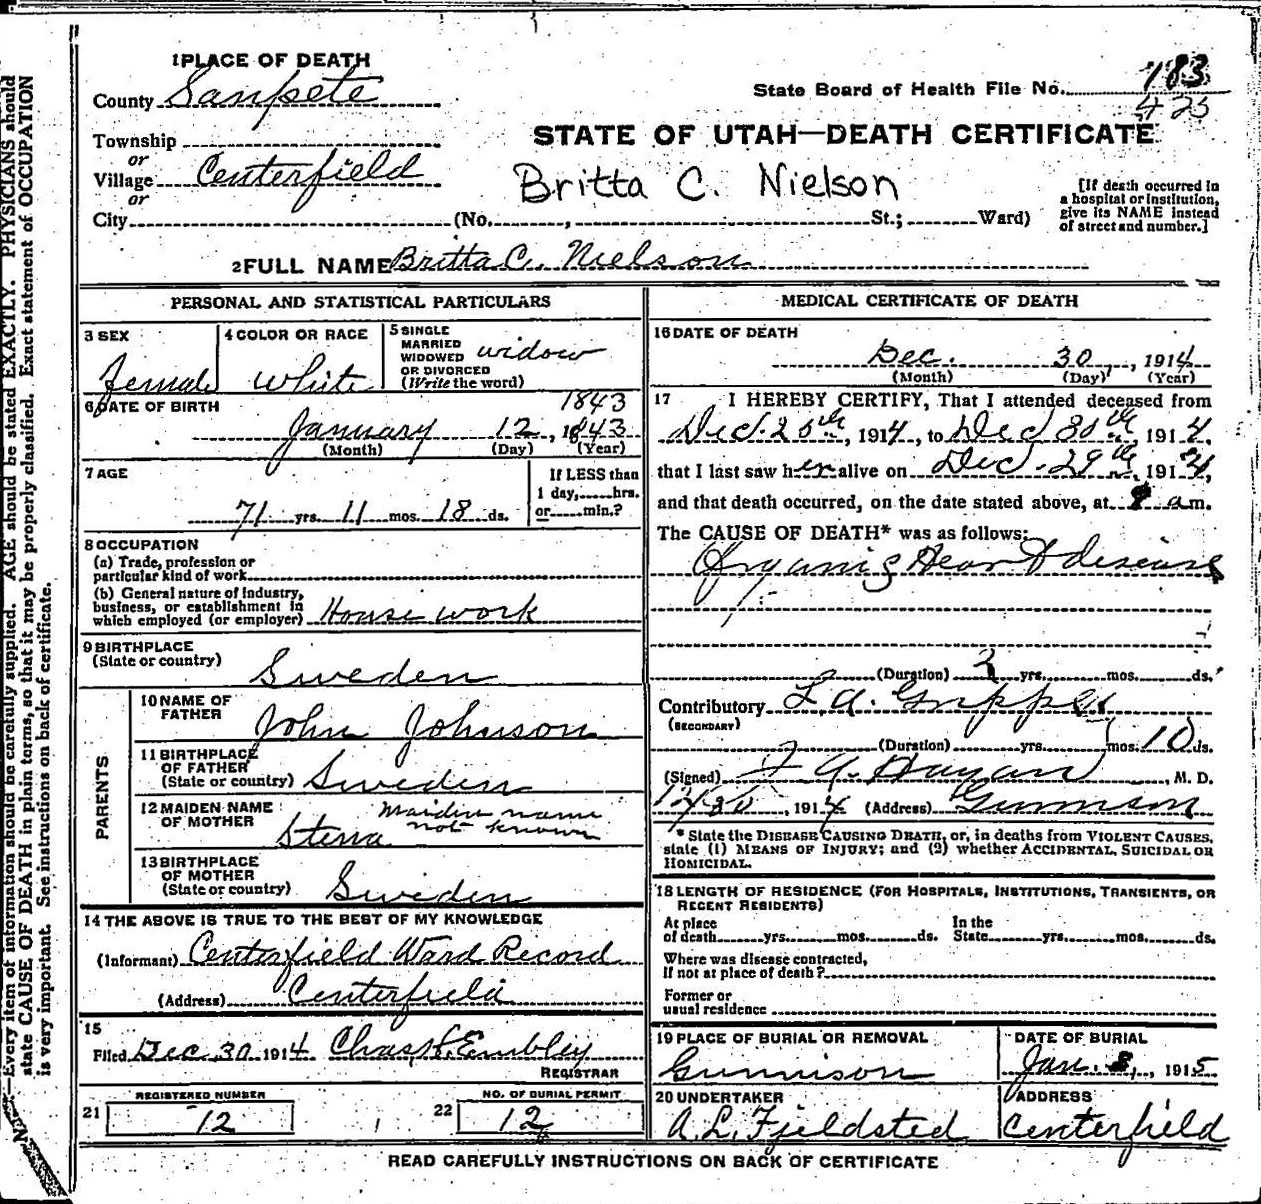 1 PLACE OF DEATH
County Sanpete
State Board of Health File No. 183
425
Township
or
Village Centerfield
or
City (No. , St.; Ward)
STATE OF UTAH—DEATH CERTIFICATE
Britta C. Nielson
[If death occurred in
a hospital or institution,
give its NAME instead
of street and number.]
2 FULL NAME Britta C. Nielson
PERSONAL AND STATISTICAL PARTICULARS
3 SEX
Female
4 COLOR OR RACE
White
5 SINGLE
MARRIED
WIDOWED
OR DIVORCED
(Write the word)
widow
6 DATE OF BIRTH
1843
January 12, 1843
(Month) (Day) (Year)
7 AGE
71 yrs. 11 mos. 18 ds.
If LESS than
1 day, hrs.
or min.?
8 OCCUPATION
(a) Trade, profession or
particular kind of work
(b) General nature of Industry,
business, or establishment in
which employed (or employer) House work
9 BIRTHPLACE
(State or country)
Sweden
PARENTS
10 NAME OF
FATHER
John Johnson
11 BIRTHPLACE
OF FATHER
(State or country) Sweden
12 MAIDEN NAME
OF MOTHER
Maiden name
not known
Stena
13 BIRTHPLACE
OF MOTHER
(State or country) Sweden
14 THE ABOVE IS TRUE TO THE BEST OF MY KNOWLEDGE
(Informant) Centerfield Ward Record
(Address) Centerfield
15
Filed Dec 30 1914 Chas. Embley
REGISTRAR
21 REGISTERED NUMBER
12
22 NO. OF BURIAL PERMIT
12
MEDICAL CERTIFICATE OF DEATH
16 DATE OF DEATH
Dec. 30, 1914
(Month) (Day) (Year)
17 I HEREBY CERTIFY, That I attended deceased from
Dec. 25th, 1914, to Dec 30th, 1914,
that I last saw her alive on Dec. 29th, 1914,
and that death occurred, on the date stated above, at a m.
The CAUSE OF DEATH* was as follows:
Organic Heart disease
(Duration) yrs. mos. ds.
Contributory La Grippe
(SECONDARY)
(Duration) yrs. mos. 10 ds.
(Signed) , M. D.
12/30, 1914 (Address) Gunnison
* State the DISEASE CAUSING DEATH, or, in deaths from VIOLENT CAUSES,
state (1) MEANS OF INJURY; and (2) whether ACCIDENTAL, SUICIDAL OR
HOMICIDAL.
18 LENGTH OF RESIDENCE (FOR HOSPITALS, INSTITUTIONS, TRANSIENTS, OR
RECENT RESIDENTS)
At place
of death yrs. mos. ds.
In the
State yrs. mos. ds.
Where was disease contracted,
If not at place of death?
Former or
usual residence
19 PLACE OF BURIAL OR REMOVAL
Gunnison
DATE OF BURIAL
Jan. , 1915
20 UNDERTAKER
A. L. Fjeldsted
ADDRESS
Centerfield
READ CAREFULLY INSTRUCTIONS ON BACK OF CERTIFICATE
—Every item of information should be carefully supplied. AGE should be stated EXACTLY. PHYSICIANS should
state CAUSE OF DEATH in plain terms, so that it may be properly classified. Exact statement of OCCUPATION
is very important. See instructions on back of certificate.